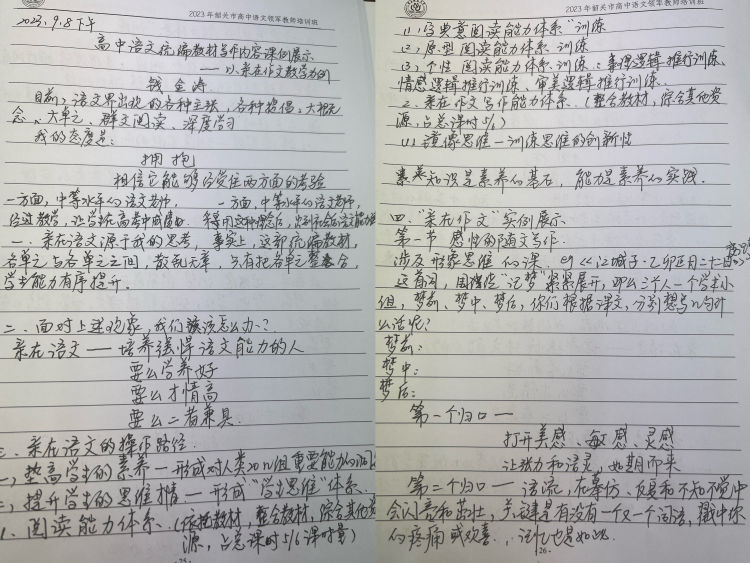 2023年韶关市高中语文领军教师培训班
2023.9.8下午
高中语文统编教材写作内容课例展示
——以亲在作文教学为例
钱金涛
目前,语文界出现的各种主张,各种提倡,大概
念、大单元、群文阅读、深度学习
我的态度是:
拥抱
相信它能够经受住两方面的考验
一方面,中等水平的语文老师,
一方面,中等水平的语文老师,
经过教学,让学生在高考中
得用这种理念后,
一、亲在语文源于我的思考,事实上,这部统编教材,
各单元与各单元之间,散乱无章,只有把各单元整合,
学生能力有序提升。
二、面对上述现象,我们该怎么办?
亲在语文——培养强悍语文能力的人
要么学养好
要么才情高
要么二者兼具.
三、亲在语文的操作路径
一,垫高学生的素养—形成对人类20几组重要能力的
二,提升学生的思维精—形成“学生思维”体系.
1.阅读能力体系.(依托教材,整合教材,综合其他资
源,占总课时5/6课时量)
25
2023年韶关市高中语文领军教师培训班
(1).写典意阅读能力体系”训练
(2).原型阅读能力体系训练
(3)个性阅读能力体系训练:事理逻辑推行训练、
情感逻辑推行训练、审美逻辑推行训练.
2.亲在作文写作能力体系.(整合教材,综合其他资
源,占总课时1/6)
(1)镜像思维—训练思维的创新性
知识是素养的基石,能力是素养的实践.
四.“亲在作文”实例展示
第一节 感性的随文写作.
涉及形象思维的课 eg《江城子·乙卯正月二十日
这首词,围绕“记梦”紧紧展开,那么三个人一个学术小
组,梦前、梦中、梦后,你们根据课文,分别想写几句什
么话呢?
梦前:
梦中:
梦后:
第一个归口—
打开美感、敏感、灵感
让张力和活灵,如期而来
第二个归口—语流,在摹仿、反复和不知不觉中
会闪亮和茁壮,关键是有没有一个又一个词语,戳中你
的疼痛或欢喜.,记忆也是如此.
26